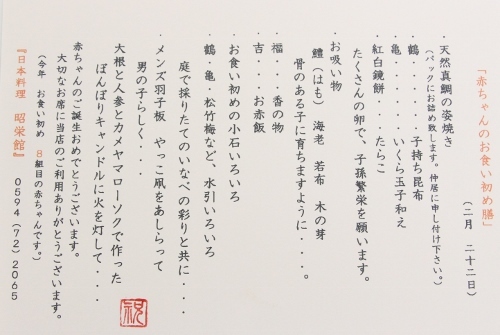 『赤ちゃんのお食い初め膳』
（二月　二十二日）
・天然真鯛の姿焼き
（パックにお詰め致します。仲居に申し付け下さい。）
・鶴・・・・・・・子持ち昆布
・亀・・・・・・・いくら玉子和え
・紅白鏡餅・・・・たらこ
たくさんの卵で、子孫繁栄を願います。
・お吸い物
鱧（はも）　海老　若布　木の芽
骨のある子に育ちますように・・・・。
・福・・・香の物
・吉・・・お赤飯
・お食い初めの小石いろいろ
・鶴・亀・松竹梅など、水引いろいろ
庭で採りたてのいなべの彩りと共に・・・・
・メンズ羽子板　やっこ凧をあしらって
男の子らしく・・・・
大根と人参とカメヤマローソクで作った
ぼんぼりキャンドルに火を灯して・・・・
赤ちゃんのご誕生おめでとうございます。
大切なお席に当店のご利用ありがとうございます。
（今年　お食い初め　８組目の赤ちゃんです。）
『日本料理　昭栄館』　０５９４（７２）２０６５
祝